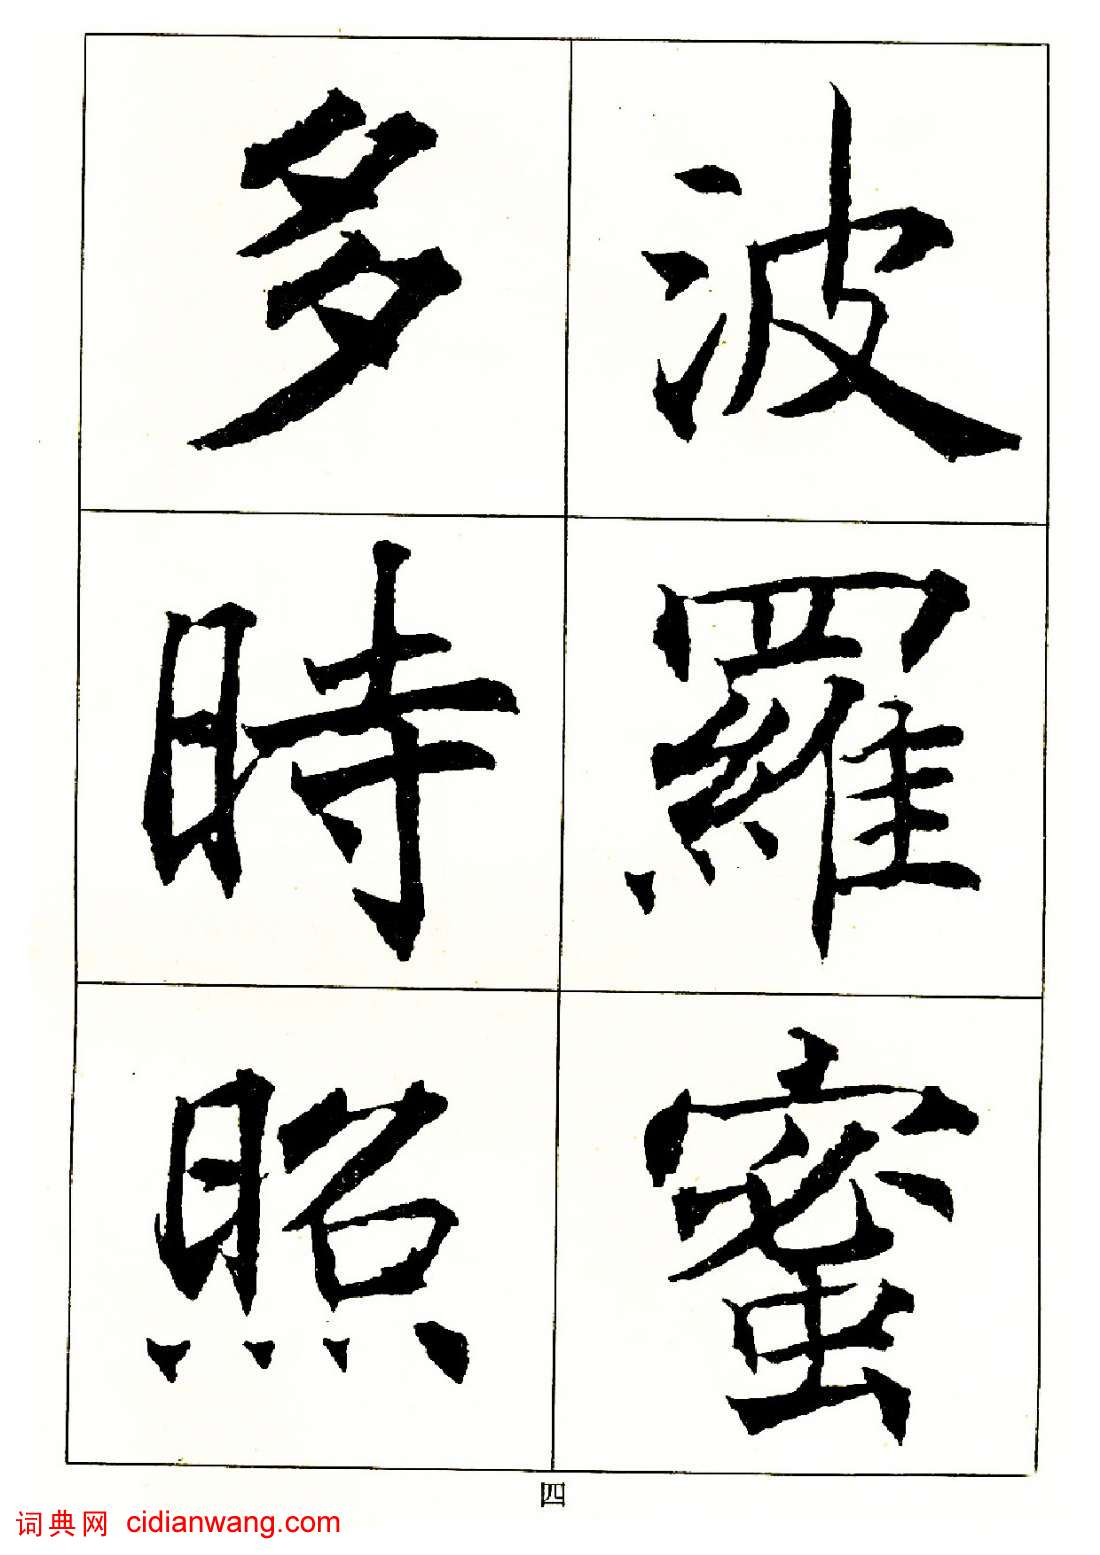 波羅蜜
多時照
四
词典网 cidianwang.com